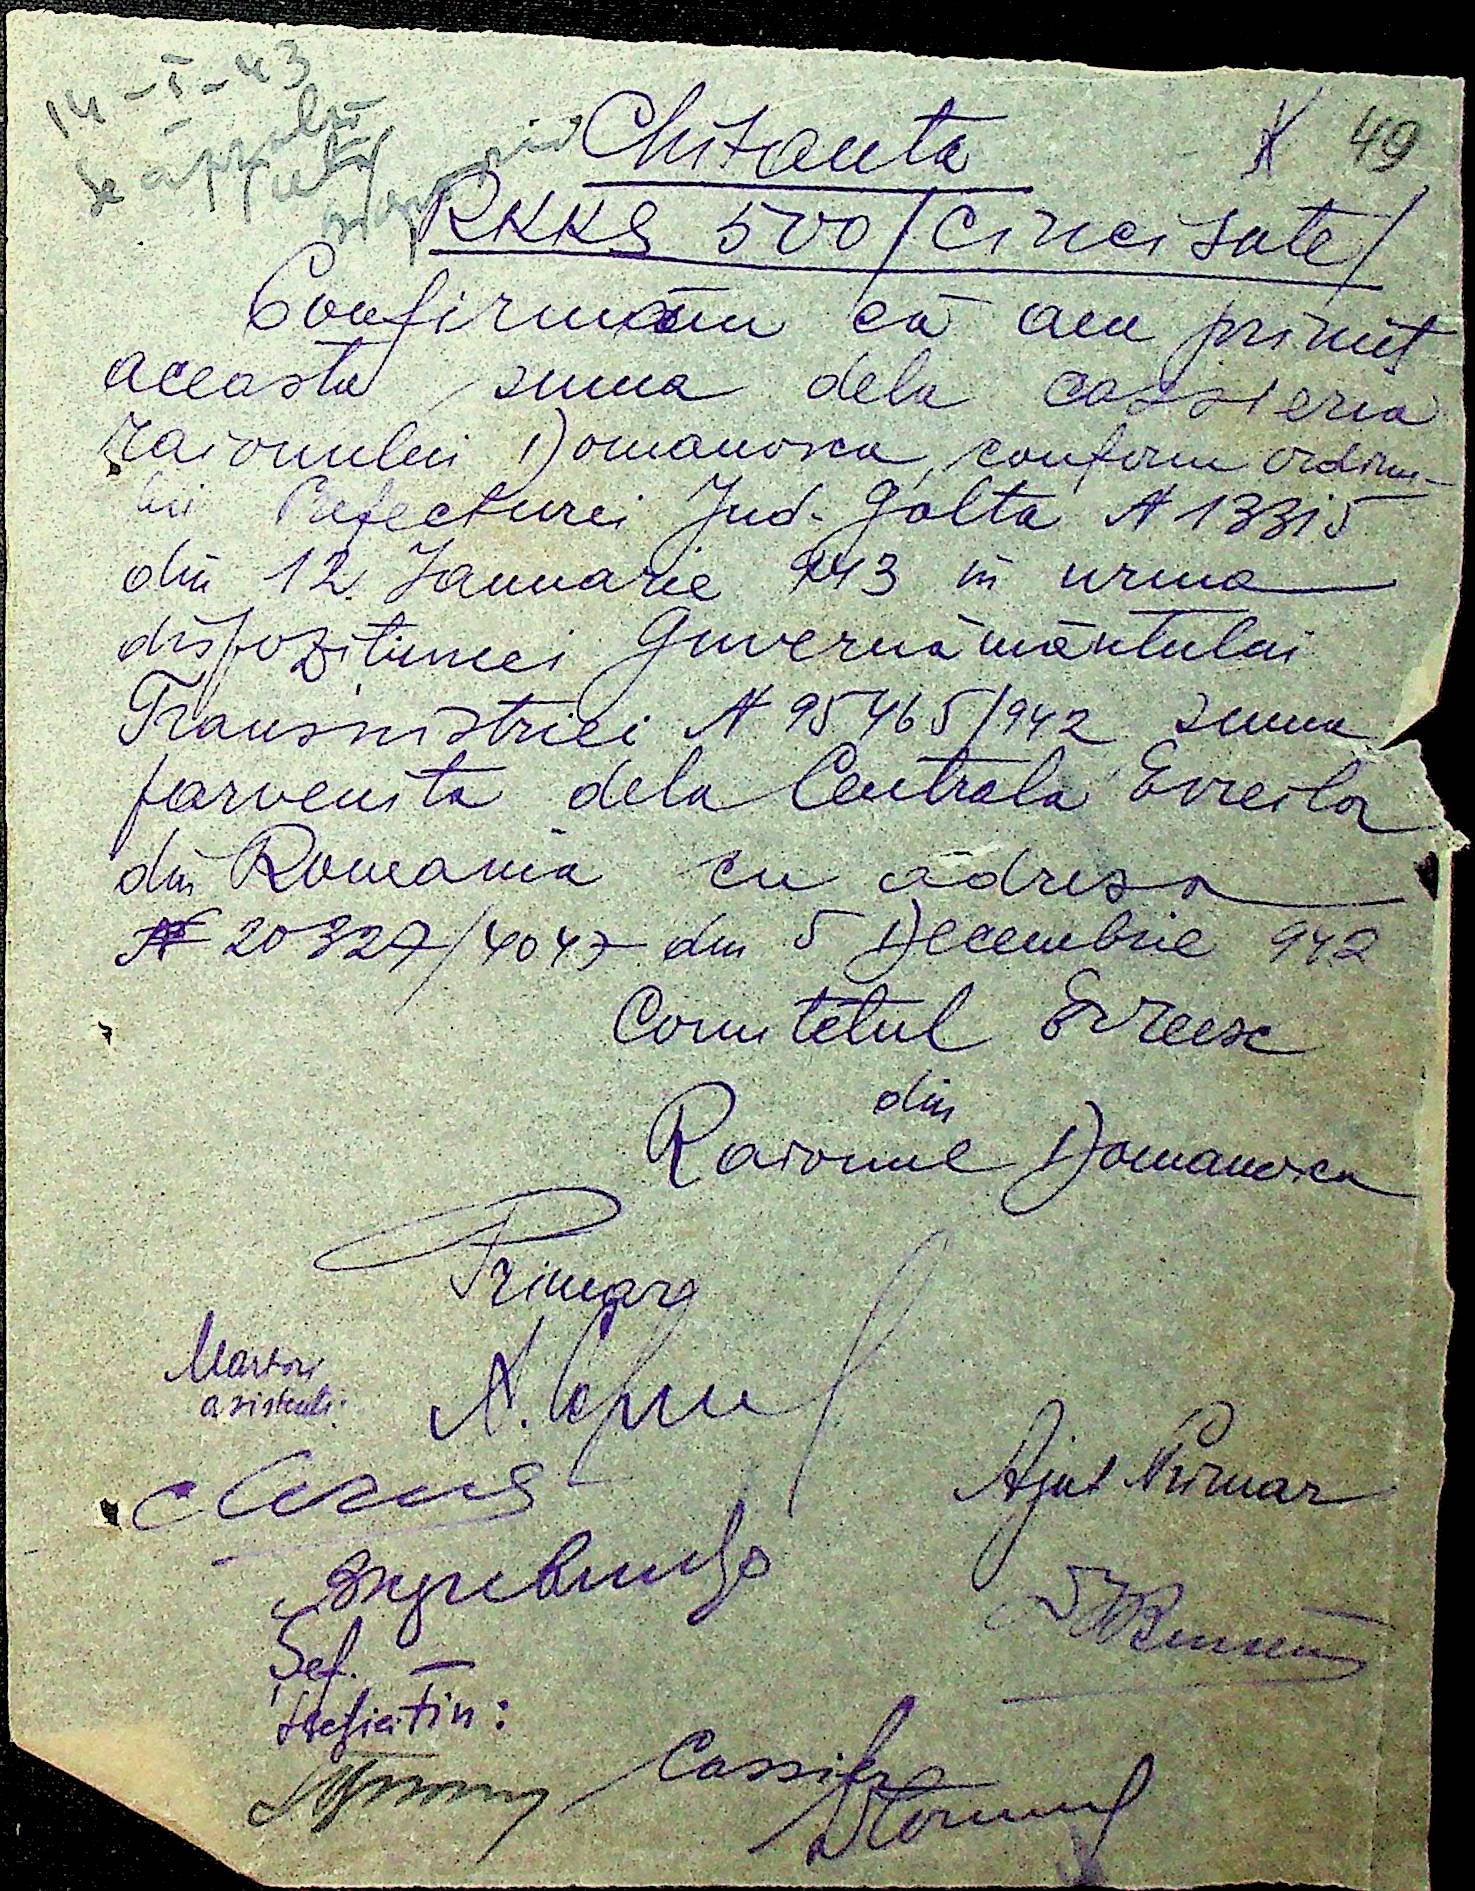 14-I-43
49
Chitanta
RKKS 500/Cinci sute/
Confirmăm că am primit
aceasta suma dela cassieria
raionului Domanovca, conform ordinu-
lui Prefecturei Jud. Golta N 13315
din 12. Januarie 943 in urma
dispozitiunei Guvernământului
Transnistriei N 95465/942 suma
parvenita dela Centrala Evreilor
din Romania cu adresa
N 20327/4047 din 5 Decembrie 942
Comitetul Evreesc
din
Raionul Domanovca
Primar
Martori
asistenti:
Ajut Primar
Şef.
Cassier